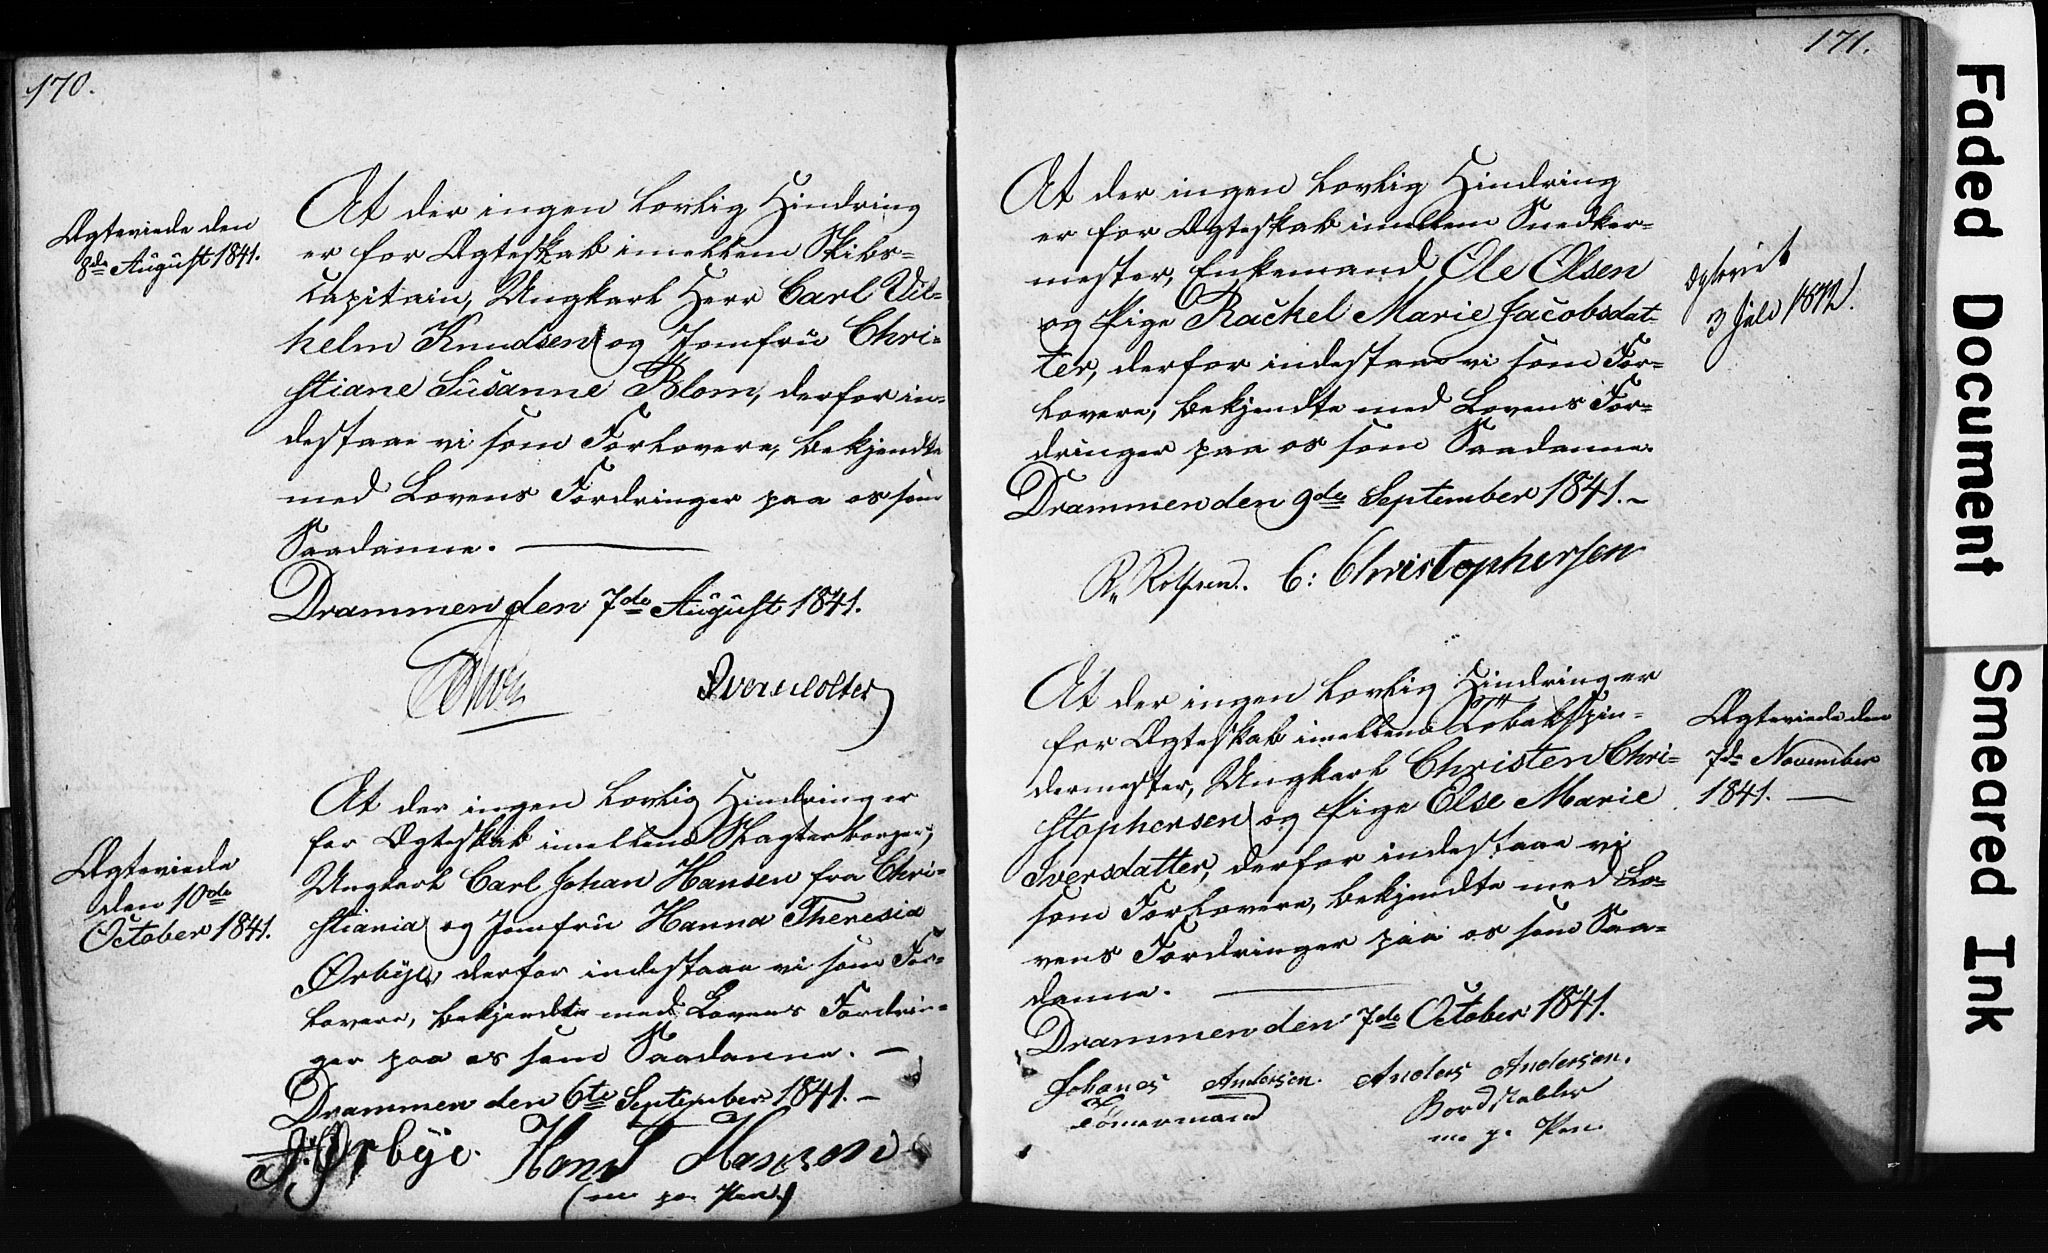 170.
Ægteviede den
8de August 1841.
At der ingen lovlig Hindring
er for Ægteskab imellem Skibs-
capitain, Ungkarl Herr Carl Vil-
helm Knudsen og Jomfru Chri-
stiane Susanne Blom, derfor in-
destaae vi som Forlovere, bekjendte
med Lovens Fordringer paa os som
Saadanne.
Drammen den 7de August 1841.
Ægteviede
den 10de
October 1841.
At der ingen lovlig Hindring er
for Ægteskab imellem Slagterborger,
Ungkarl Carl Johan Hansen fra Chri-
stiania og Jomfru Hanna Theresia
Ørbye, derfor indestaae vi som For-
lovere, bekjendte med Lovens Fordrin-
ger paa os som Saadanne. —
Drammen den 6te September 1841. —
Ørbye. Hans Hansen
(m. p. Pen.)
171.
At der ingen lovlig Hindring
er for Ægteskab imellem Snedker-
mester, Enkemand Ole Olsen
og Pige Rachel Marie Jacobsdat-
ter, derfor indestaae vi som For-
lovere, bekjendte med Lovens For-
dringer paa os som Saadanne.
Drammen den 9de September 1841. —
C: Christophersen
Ægteviet
3 Juli 1842.
At der ingen lovlig Hindring er
for Ægteskab imellem Tobakspin-
dermester, Ungkarl Christen Chri-
stophersen og Pige Else Marie
Iversdatter, derfor indestaae vi
som Forlovere, bekjendte med Lo-
vens Fordringer paa os som Saa-
danne.
Drammen den 7de October 1841.
Johanes Andersen. Anders Andersen.
Tömermand Bordstabler
m. p. Pen.
Ægteviede den
7de November
1841. —
Faded Document
Smeared Ink